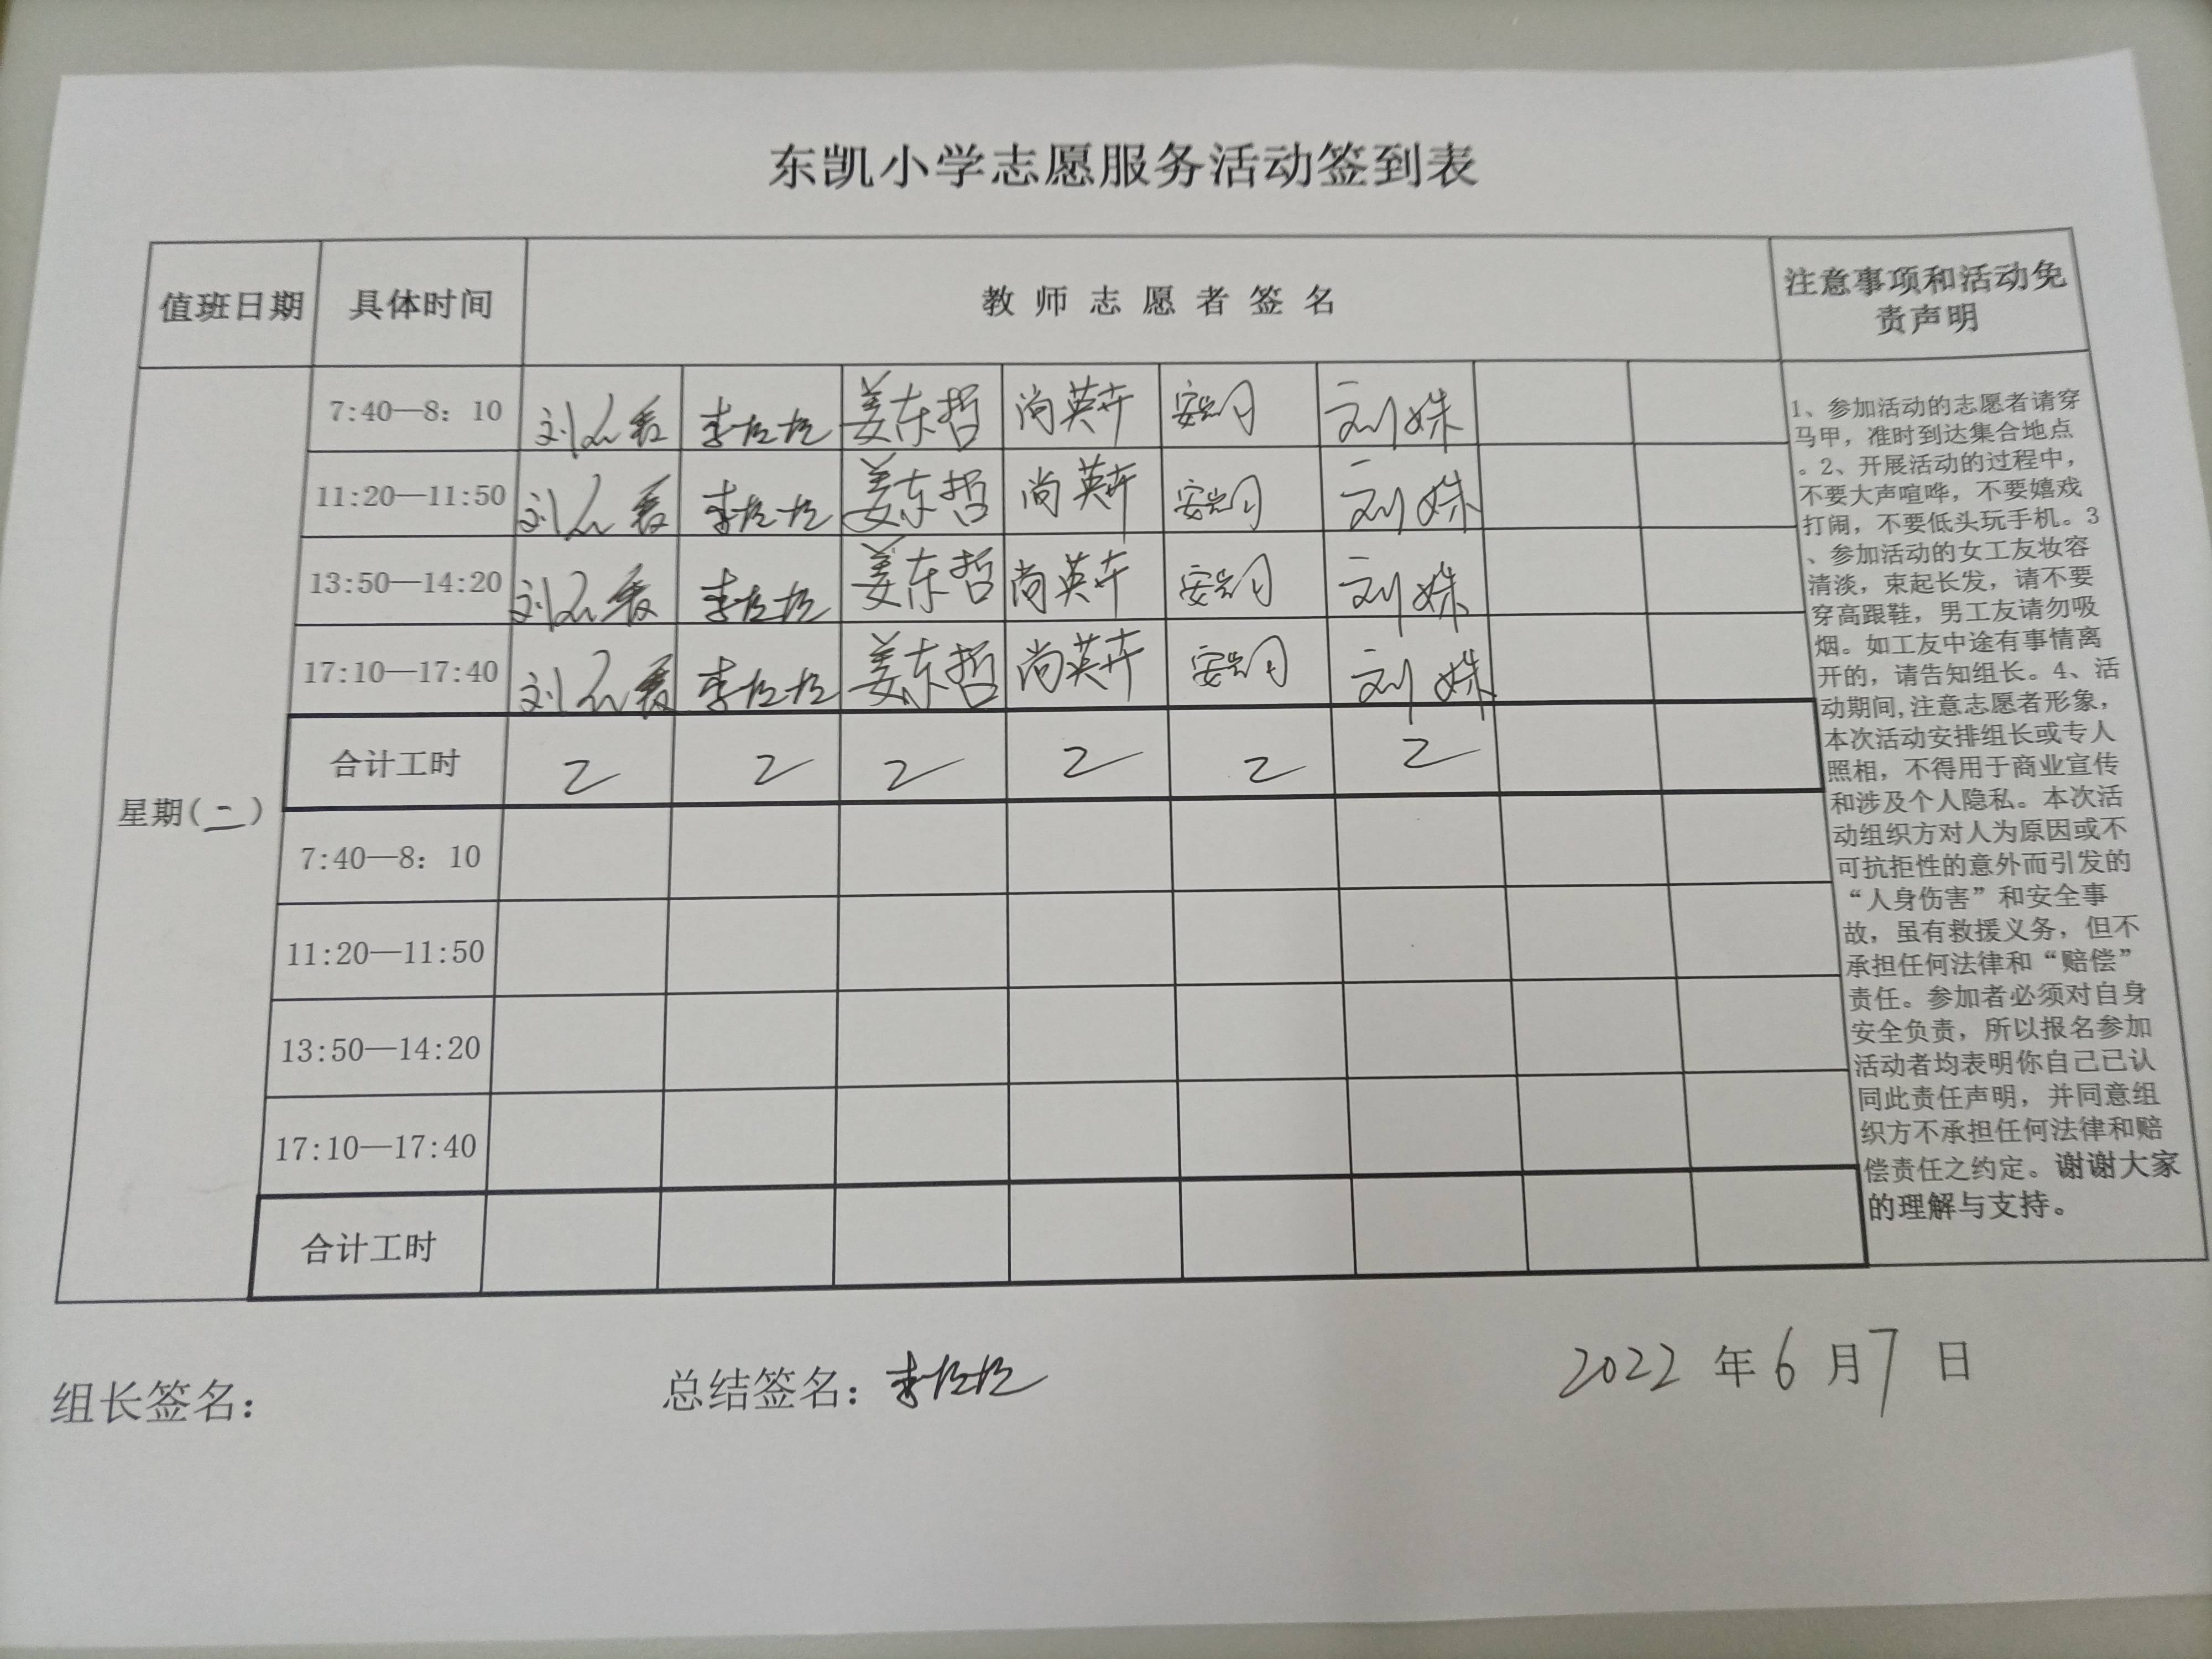 东凯小学志愿服务活动签到表
值班日期 具体时间 教师志愿者签名 注意事项和活动免
责声明
7:40—8：10 刘 姜东哲 尚英卉 安 刘姝
11:20—11:50 刘 姜东哲 尚英卉 安 刘姝
13:50—14:20 刘 姜东哲 尚英卉 安 刘姝
17:10—17:40 刘 姜东哲 尚英卉 安 刘姝
合计工时 2 2 2 2 2 2
星期(二)
7:40—8：10
11:20—11:50
13:50—14:20
17:10—17:40
合计工时
1、参加活动的志愿者请穿
马甲，准时到达集合地点
。2、开展活动的过程中，
不要大声喧哗，不要嬉戏
打闹，不要低头玩手机。3
、参加活动的女工友妆容
清淡，束起长发，请不要
穿高跟鞋，男工友请勿吸
烟。如工友中途有事情离
开的，请告知组长。4、活
动期间,注意志愿者形象，
本次活动安排组长或专人
照相，不得用于商业宣传
和涉及个人隐私。本次活
动组织方对人为原因或不
可抗拒性的意外而引发的
“人身伤害”和安全事
故，虽有救援义务，但不
承担任何法律和“赔偿”
责任。参加者必须对自身
安全负责，所以报名参加
活动者均表明你自己已认
同此责任声明，并同意组
织方不承担任何法律和赔
偿责任之约定。谢谢大家
的理解与支持。
组长签名： 总结签名： 2022年6月7日